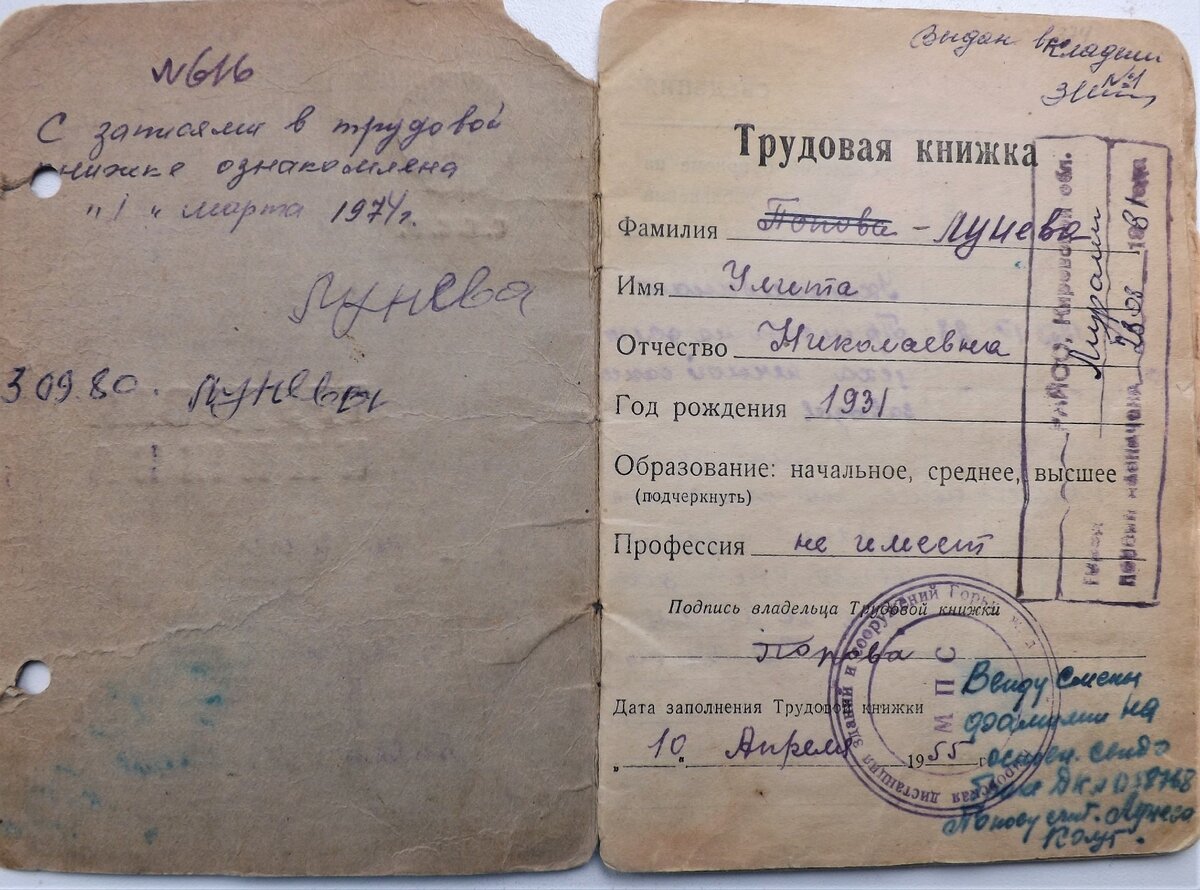 №616
С записями в трудовой
книжке ознакомлена
"1" марта 1974г.
Лунева
3.09.80. Лунева
Выдан вкладыш
№1
Трудовая книжка
Фамилия Попова - Лунева
Имя Улита
Отчество Николаевна
Год рождения 1931
Образование: начальное, среднее, высшее
(подчеркнуть)
Профессия не имеет
Подпись владельца Трудовой книжки
Попова
Дата заполнения Трудовой книжки
"10" Апреля 1955 г.
РАЙСО, Кировской обл.
Пенсия назначена 28.08 1981 года
дистанция зданий и сооружений Горьк. ж. д.
МПС
Ввиду смены
фамилии на
основ. свидо